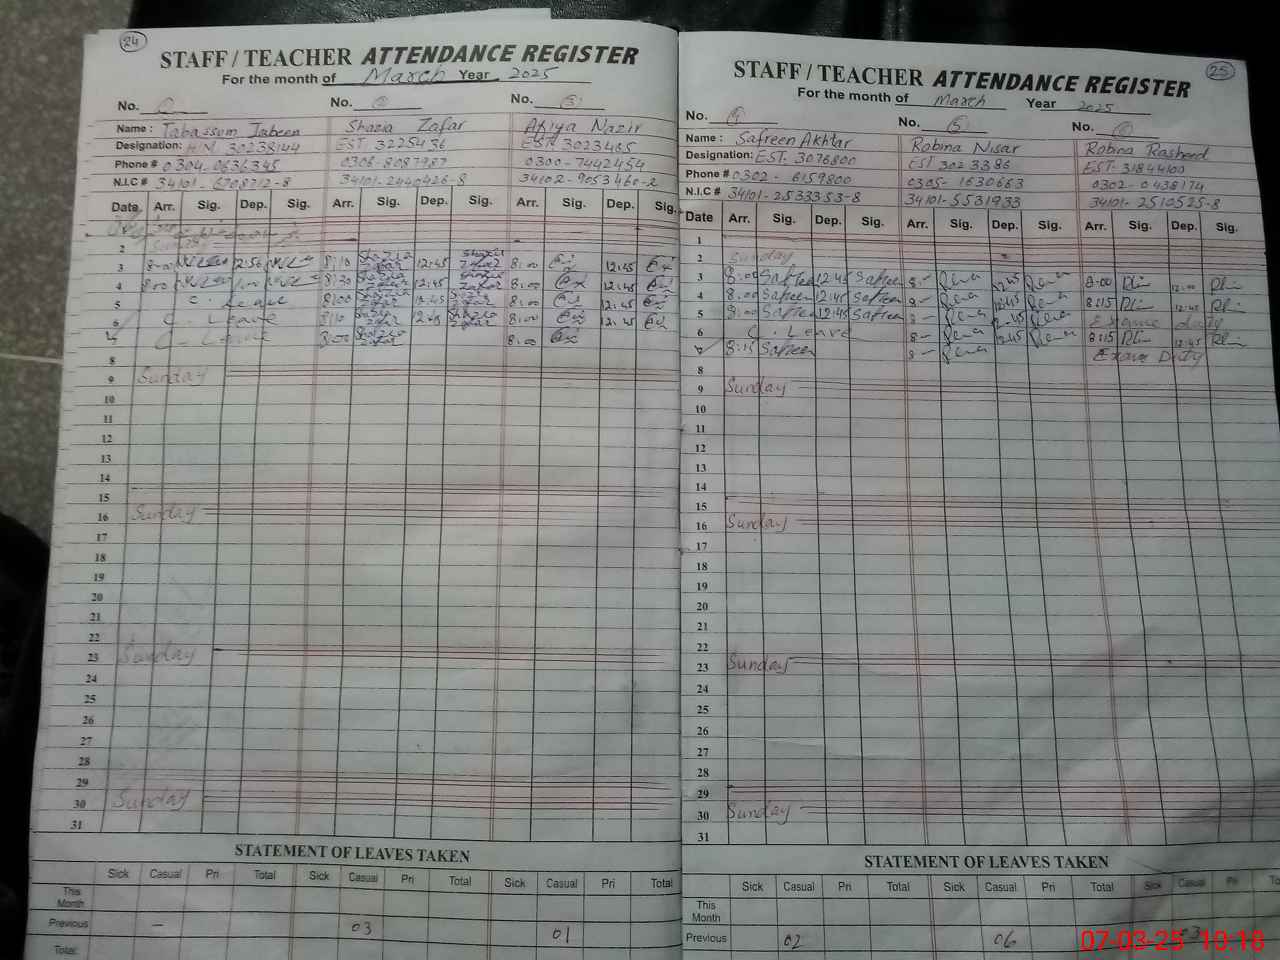 24
STAFF / TEACHER ATTENDANCE REGISTER
For the month of March Year 2025
No. 1 No. 2 No. 3
Name : Tabassom Jabeen Shazia Zafar Afiya Nazir
Designation: H/M 30238144 EST. 3225436 EST. 3023465
Phone # 0304-0636345 0306-8087987 0300-7442454
N.I.C # 34101-6708712-8 34101-2440426-8 34102-9053460-2
Date Arr. Sig. Dep. Sig. Arr. Sig. Dep. Sig. Arr. Sig. Dep. Sig.
2 Sunday
3 8:00 12:50 8:10 Shazia Zafar 12:45 Shazia Zafar 8:00 12:45
4 8:00 1:00 8:20 Shazia Zafar 12:45 Shazia Zafar 8:00 12:45
5 C. Leave 8:00 Shazia Zafar 12:45 Shazia Zafar 8:00 12:45
6 C. Leave 8:10 Shazia Zafar 12:45 Shazia Zafar 8:00 12:45
7 C. Leave 8:00 Shazia Zafar 8:00
8
9 Sunday
10
11
12
13
14
15
16 Sunday
17
18
19
20
21
22
23 Sunday
24
25
26
27
28
29
30 Sunday
31
STATEMENT OF LEAVES TAKEN
Sick Casual Pri Total Sick Casual Pri Total Sick Casual Pri Total
This Month
Previous — 03 01
Total
25
STAFF / TEACHER ATTENDANCE REGISTER
For the month of March Year 2025
No. 4 No. 5 No. 6
Name : Safreen Akhtar Robina Nisar Robina Rasheed
Designation: EST. 3076800 EST 3023386 EST- 31844100
Phone # 0302 - 6159800 0305- 1630663 0302-0438174
N.I.C # 34101-2533353-8 34101-5531933 34101-2510525-8
Date Arr. Sig. Dep. Sig. Arr. Sig. Dep. Sig. Arr. Sig. Dep. Sig.
1
2 Sunday
3 8:00 Safreen 12:45 Safreen 8- 12:45 8:00 12:00
4 8:00 Safreen 12:45 Safreen 8- 12:45 8:15 12:45
5 8:00 Safreen 12:45 Safreen 8- 12:45 duty
6 C. Leave 8- 12:45 8:15 12:45
7 8:15 Safreen 8- Exam Duty
8
9 Sunday
10
11
12
13
14
15
16 Sunday
17
18
19
20
21
22
23 Sunday
24
25
26
27
28
29
30 Sunday
31
STATEMENT OF LEAVES TAKEN
Sick Casual Pri Total Sick Casual Pri Total Sick Casual Pri
This Month
Previous 02 06 03
07-03-25 10:18